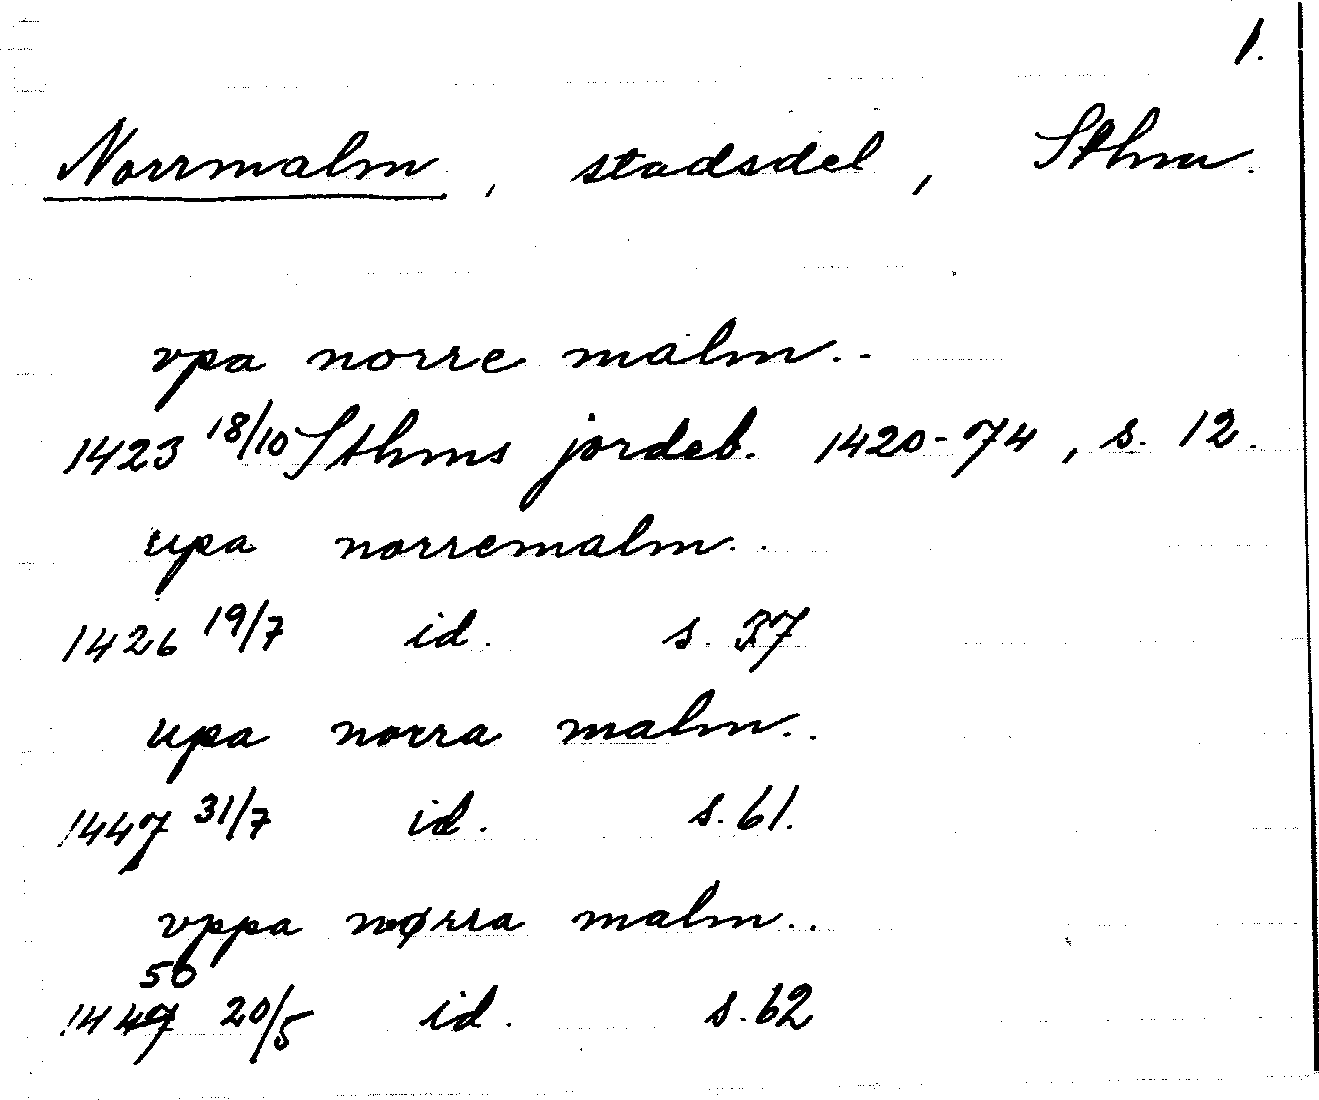 1.
Norrmalm, stadsdel, Sthm.
vpa norre malm..
1423 18/10 Sthms jordeb. 1420-74, s. 12.
upa norremalm..
1426 19/7 id. s. 37
upa norra malm..
1447 31/7 id. s. 61.
vppa nørra malm..
50
1447 20/5 id. s. 62